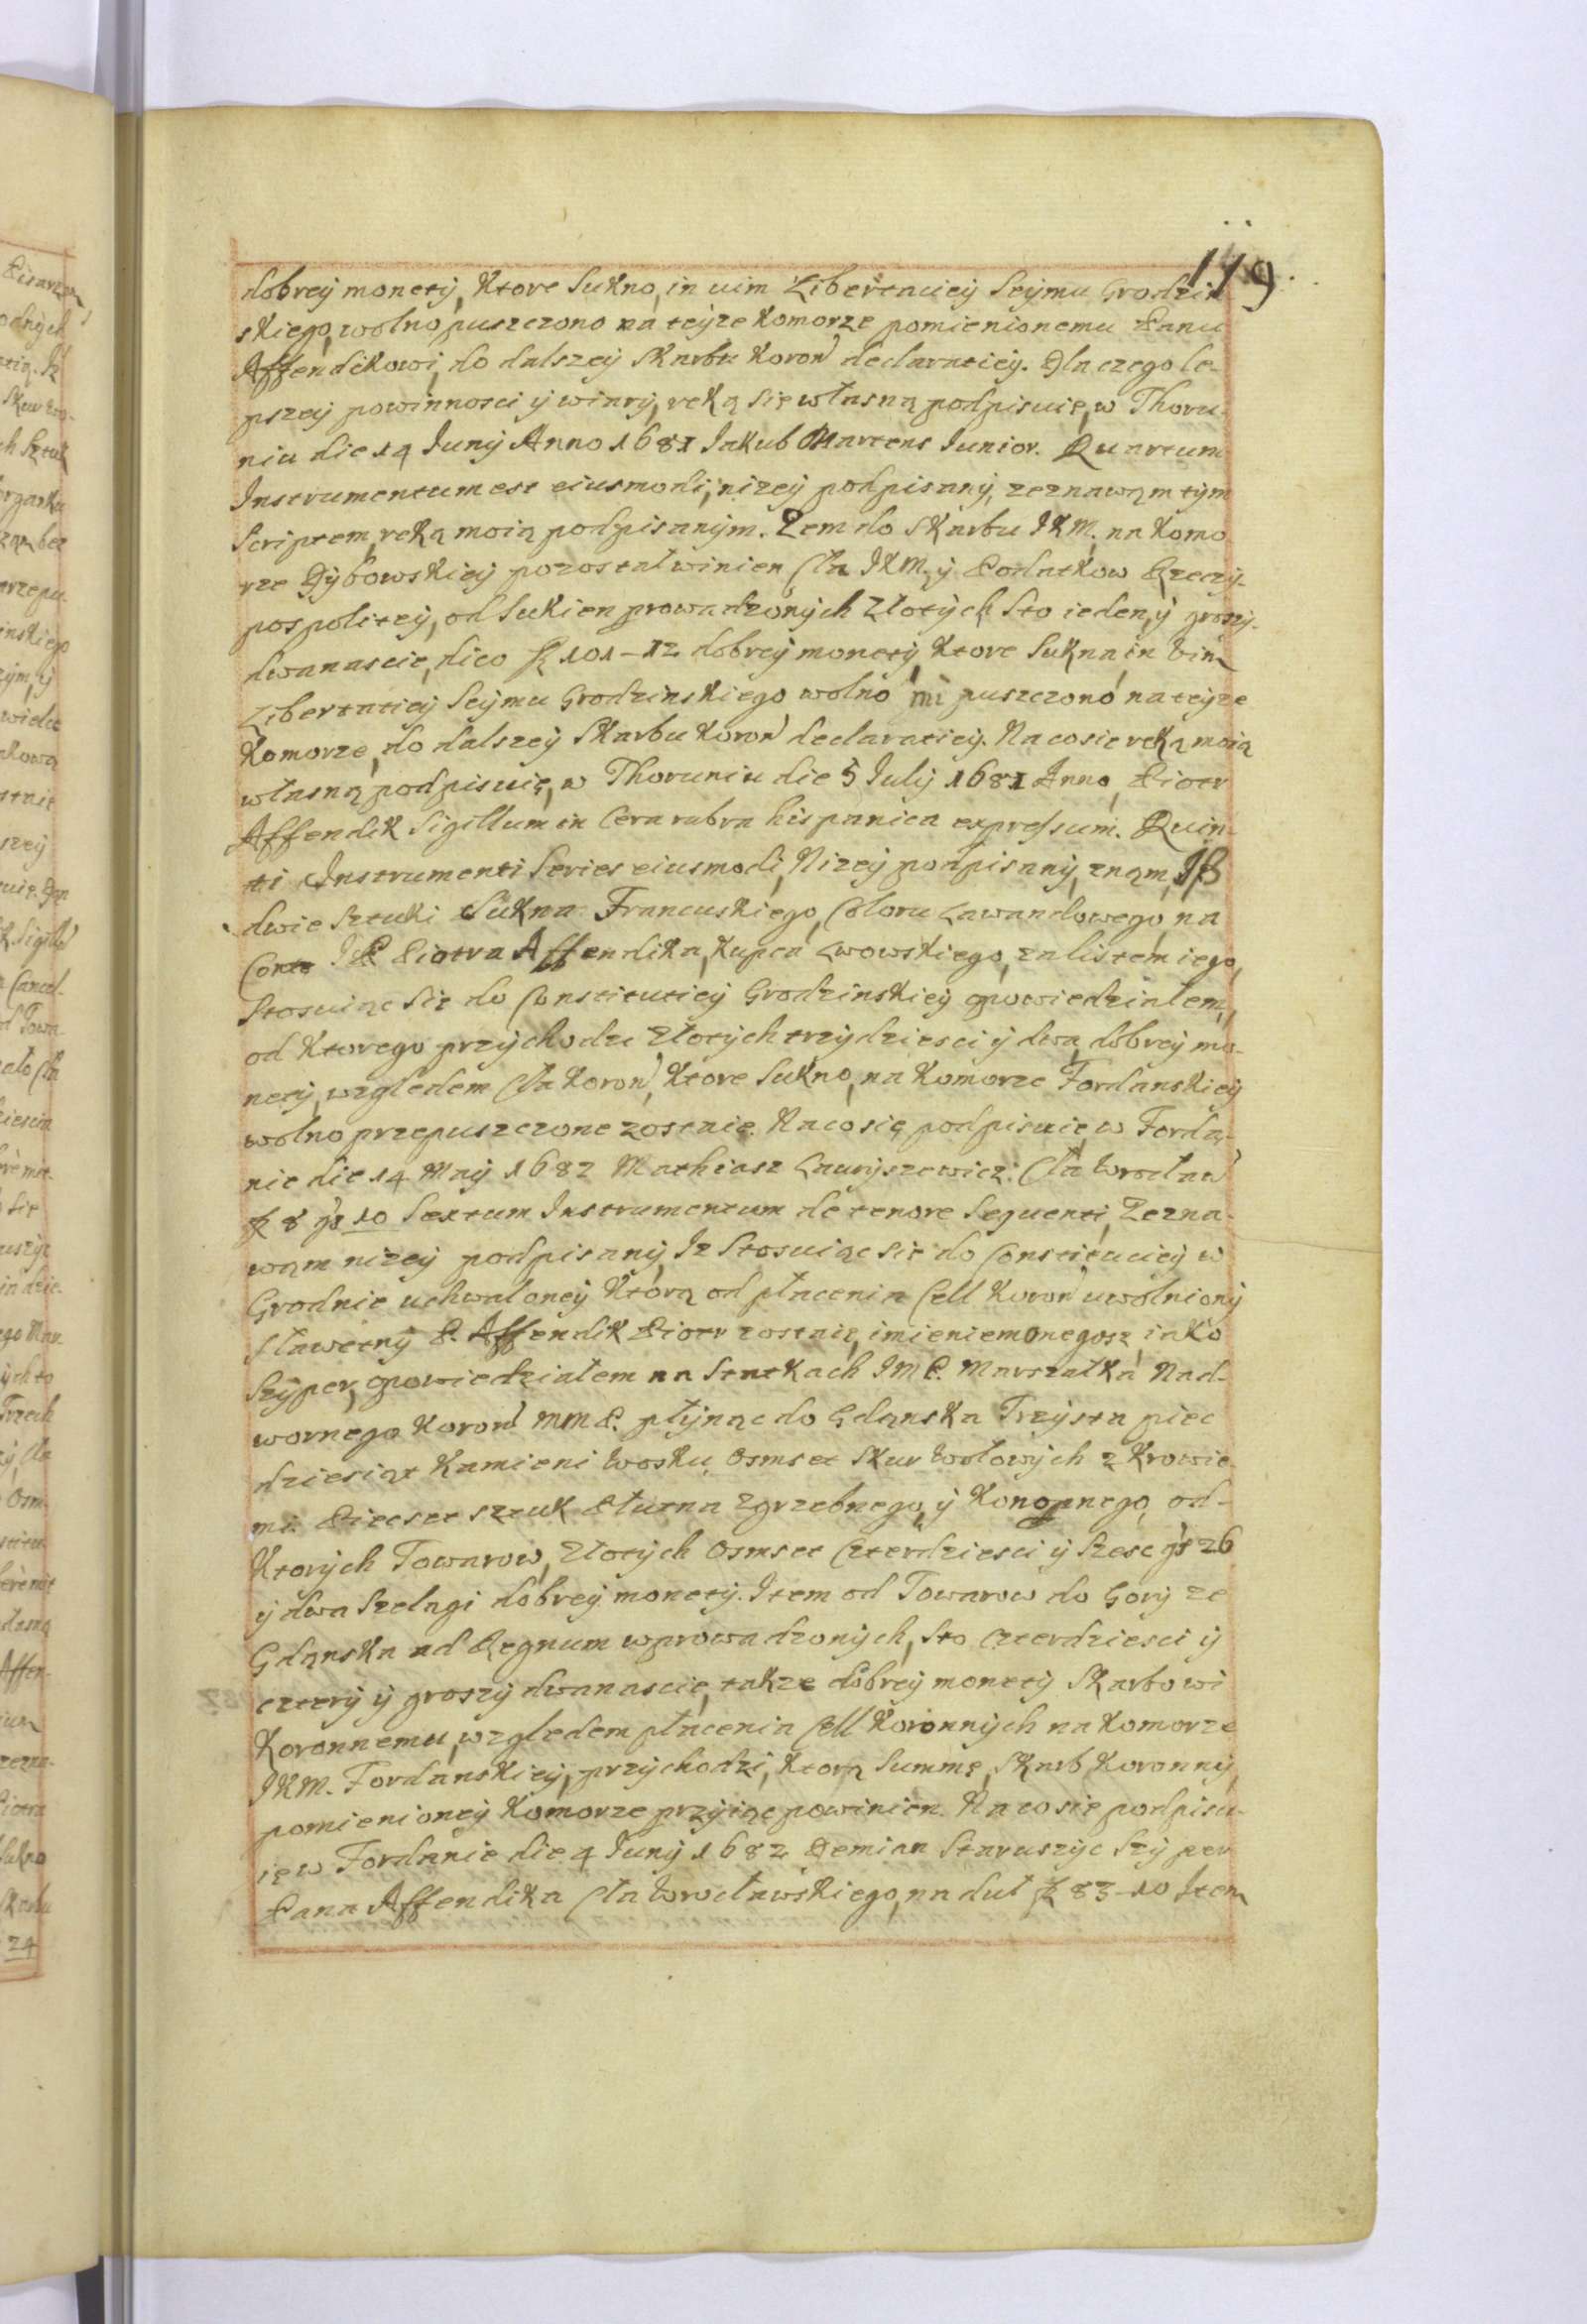 119.
dobrey monety, Ktore Sukno, in uim Libertaciey Seymu Grodzin
skiego, wolno, puszczono na teyze Komorze pomienionemu Panu
Affendikowi, do dalszey Skarbu Koron declaraticy. Dla czego le-
pszey powinnosci y wiary, reką się własną podpisuię, w Thoru-
niu die 14 Juny Anno 1681 Jakub Martens Junior. Quartum
Instrumentum est eiusmodi, nizey podpisany, zeznawąm tym
Scriptem, reką moią podpisanym. Zem do Skarbu JKM. na Komo
rze Dybowskiey pozostał winien Cła JKM. y Podatkow Rzeczy-
pospolitey, od Sukien prowadzonych Złotych Sto ieden, y groszy-
dwanascie, dico fl 101-12 dobrey monety, Ktore Sukna in Vim
Libertatiey Seymu Grodzinskiego wolno mi puszczono na teyze
Komorze, do dalszey Skarbu Koron declaraticy. Na co sie reką moią
własną podpisuię, w Thoruniu die 5 July 1681 Anno, Piotr
Affendik Sigillum in Cera rubra hispanica expressum. Quin-
ti Instrumenti Series eiusmodi, Nizey podpisany, znąm, Iß
dwie Sztuki Sukna Francuskiego, Coloru Lawandowego, na
Conto JP Piotra Affendika, Kupca Lwowskiego, za listem iego,
Stosuiąc Się do Constitutiey Grodzinskiey opowiedziałem,
od Ktorego przychodzi Złotych trzydziesci y dwa, dobrey mo-
nety, względem Cła Koron, Ktore Sukno, na Komorze Fordanskiey
wolno przepuszczone zostaie. Na co się podpisuię, w Forda-
nie die 14 May 1682 Mathiasz Lauryszewicz. Cła Wrocław
fl 8 gr 10 Sextum Instrumentum de tenore Sequenti, Zezna-
wąm nizey podpisany, Iz Stosuiąc Się do Constituciey w
Grodnie uchwaloney Ktorą od płacenia Cell Koron uwolniony
Sławetny P. Affendik Piotr zostaie, imieniem onegosz, iako
Szyper, opowiedziałem na Statkach JMP. Marszałka Nad-
wornego Koron MMP. płynąc do Gdąnska Trzysta piec
dziesiąt Kamieni Wosku, Osmset Skur Wołowych z Krowie
mi. Piecset sztuk Płutna Zgrzebnego, y Konopnego, od-
Ktorych Towarow, Złotych Osmset Czterdziesci y Szesc gr 26
y dwa Szelągi dobrey monety. Item od Towarow do Gory ze
Gdąnska ad Regnum wprowadzonych, Sto Czterdziesci y
cztery y groszy dwanascie, takze dobrey monety Skarbowi
Koronnemu, względem płacenia Cell Koronnych na Komorze
JKM. Fordanskiey, przychodzi, Ktorą Summę, Skarb Koronny,
pomienioney Komorze przyiąc powinien. Na co sie podpisu-
ię w Fordanie die 4 Juny 1682 Demian Staruszyc Szyper
Pana Affendika Cła Wrocławskiego, na dut fl 83-10 Item